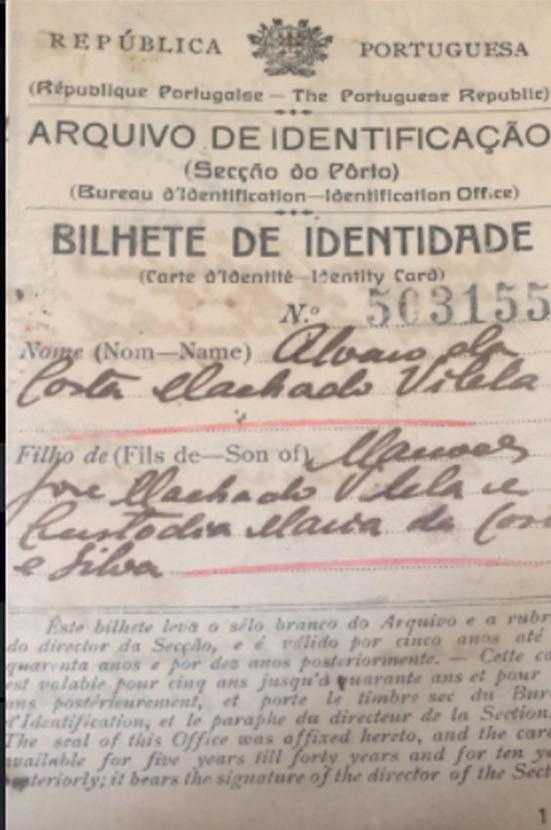 REPÚBLICA PORTUGUESA
(République Portugaise — The Portuguese Republic)
ARQUIVO DE IDENTIFICAÇÃO
(Secção do Pôrto)
(Bureau d'Identification—Identification Office)
BILHETE DE IDENTIDADE
(Carte d'Identité—Identity Card)
N.º 503155
Nome (Nom—Name) Alvaro da
Costa Machado Vilela
Filho de (Fils de—Son of) Manoel
José Machado Vilela e
Custodia Maria da Cos
e Silva
Êste bilhete leva o sêlo branco do Arquivo e a rubr
do director da Secção, e é válido por cinco anos até
quarenta anos e por dez anos posteriormente. — Cette ca
est valable pour cinq ans jusqu'à quarante ans et pour
ans postérieurement, et porte le timbre sec du Bur
d'Identification, et le paraphe du directeur de la Section.
The seal of this Office was affixed hereto, and the card
available for five years till forty years and for ten ye
posteriorly; it bears the signature of the director of the Sect
1